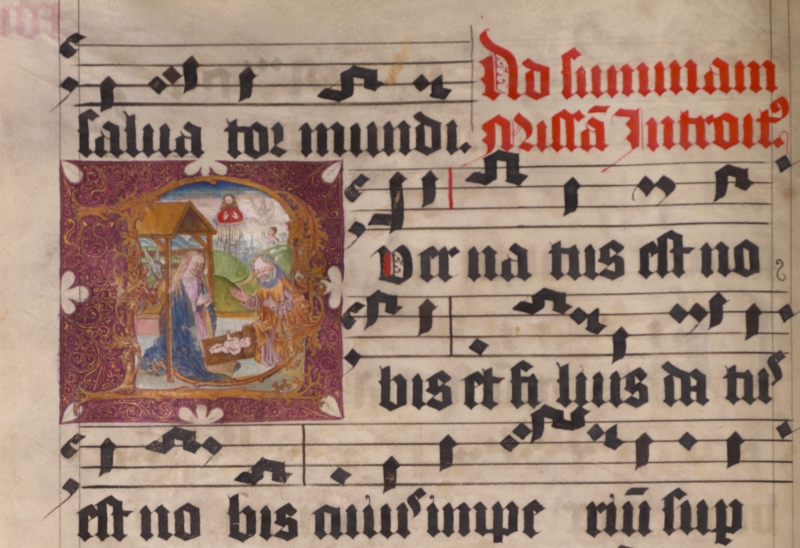 salua tor mundi. Ad summam
Missā Introitꝰ.
Puer na tus est no
bis et fi lius da tuꝰ
est no bis cuiuꝰ impe riū sup